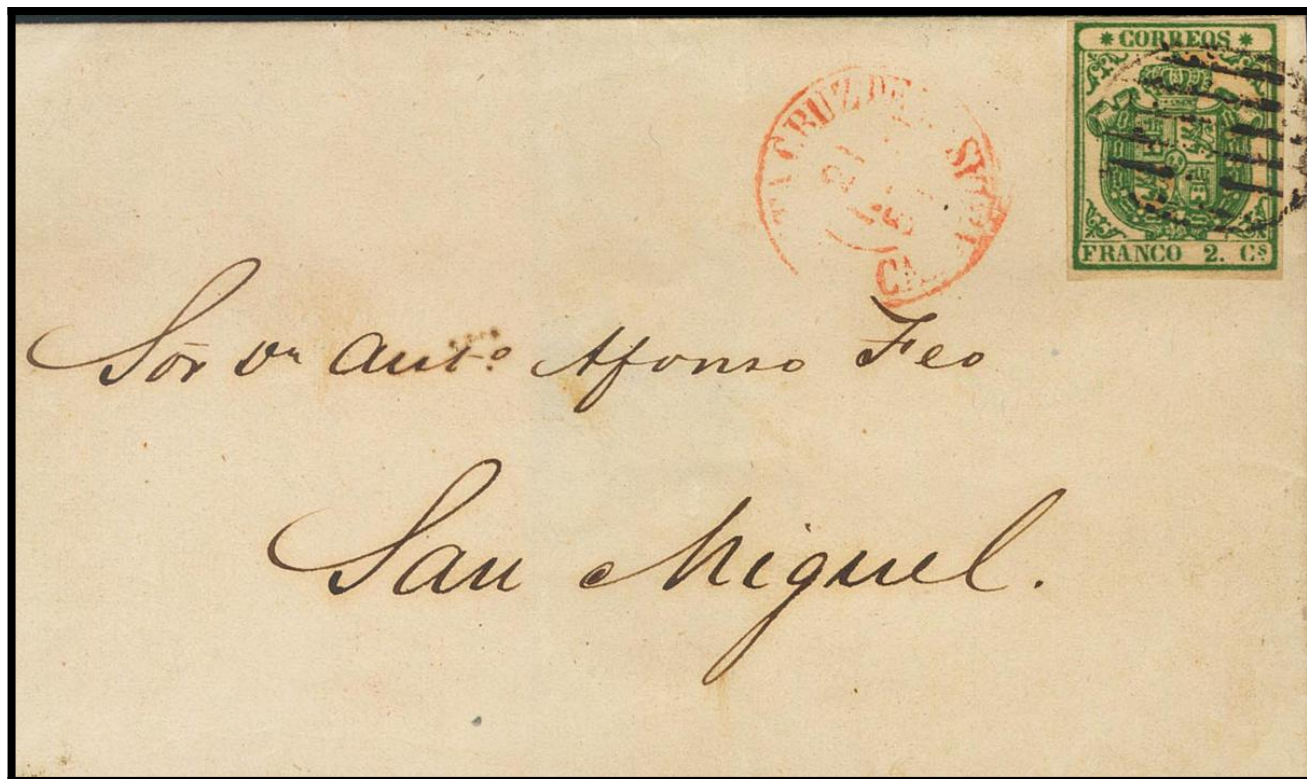 * CORREOS *
FRANCO 2. Cs
TA CRUZ DE
Sōr Dn Anto. Afonso Feo
San Miguel.